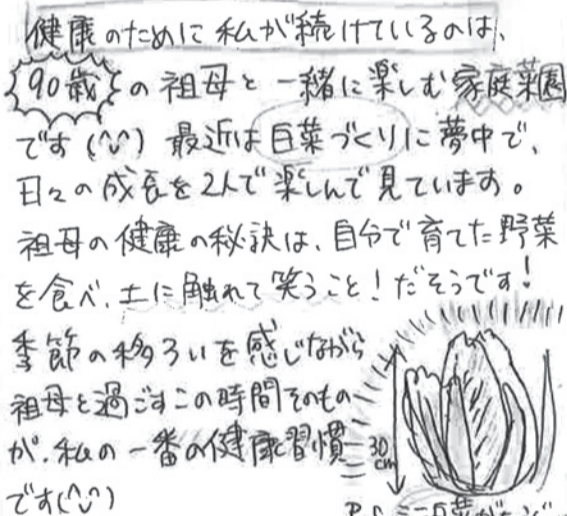 健康のために私が続けているのは、
90歳の祖母と一緒に楽しむ家庭菜園
です(^ᴗ^) 最近は白菜づくりに夢中で、
日々の成長を2人で楽しんで見ています。
祖母の健康の秘訣は、自分で育てた野菜
を食べ、土に触れて笑うこと！だそうです！
季節の移ろいを感じながら
祖母と過ごすこの時間そのもの
が、私の一番の健康習慣
です(^ᴗ^)
30
cm
P.S ミニ白菜が